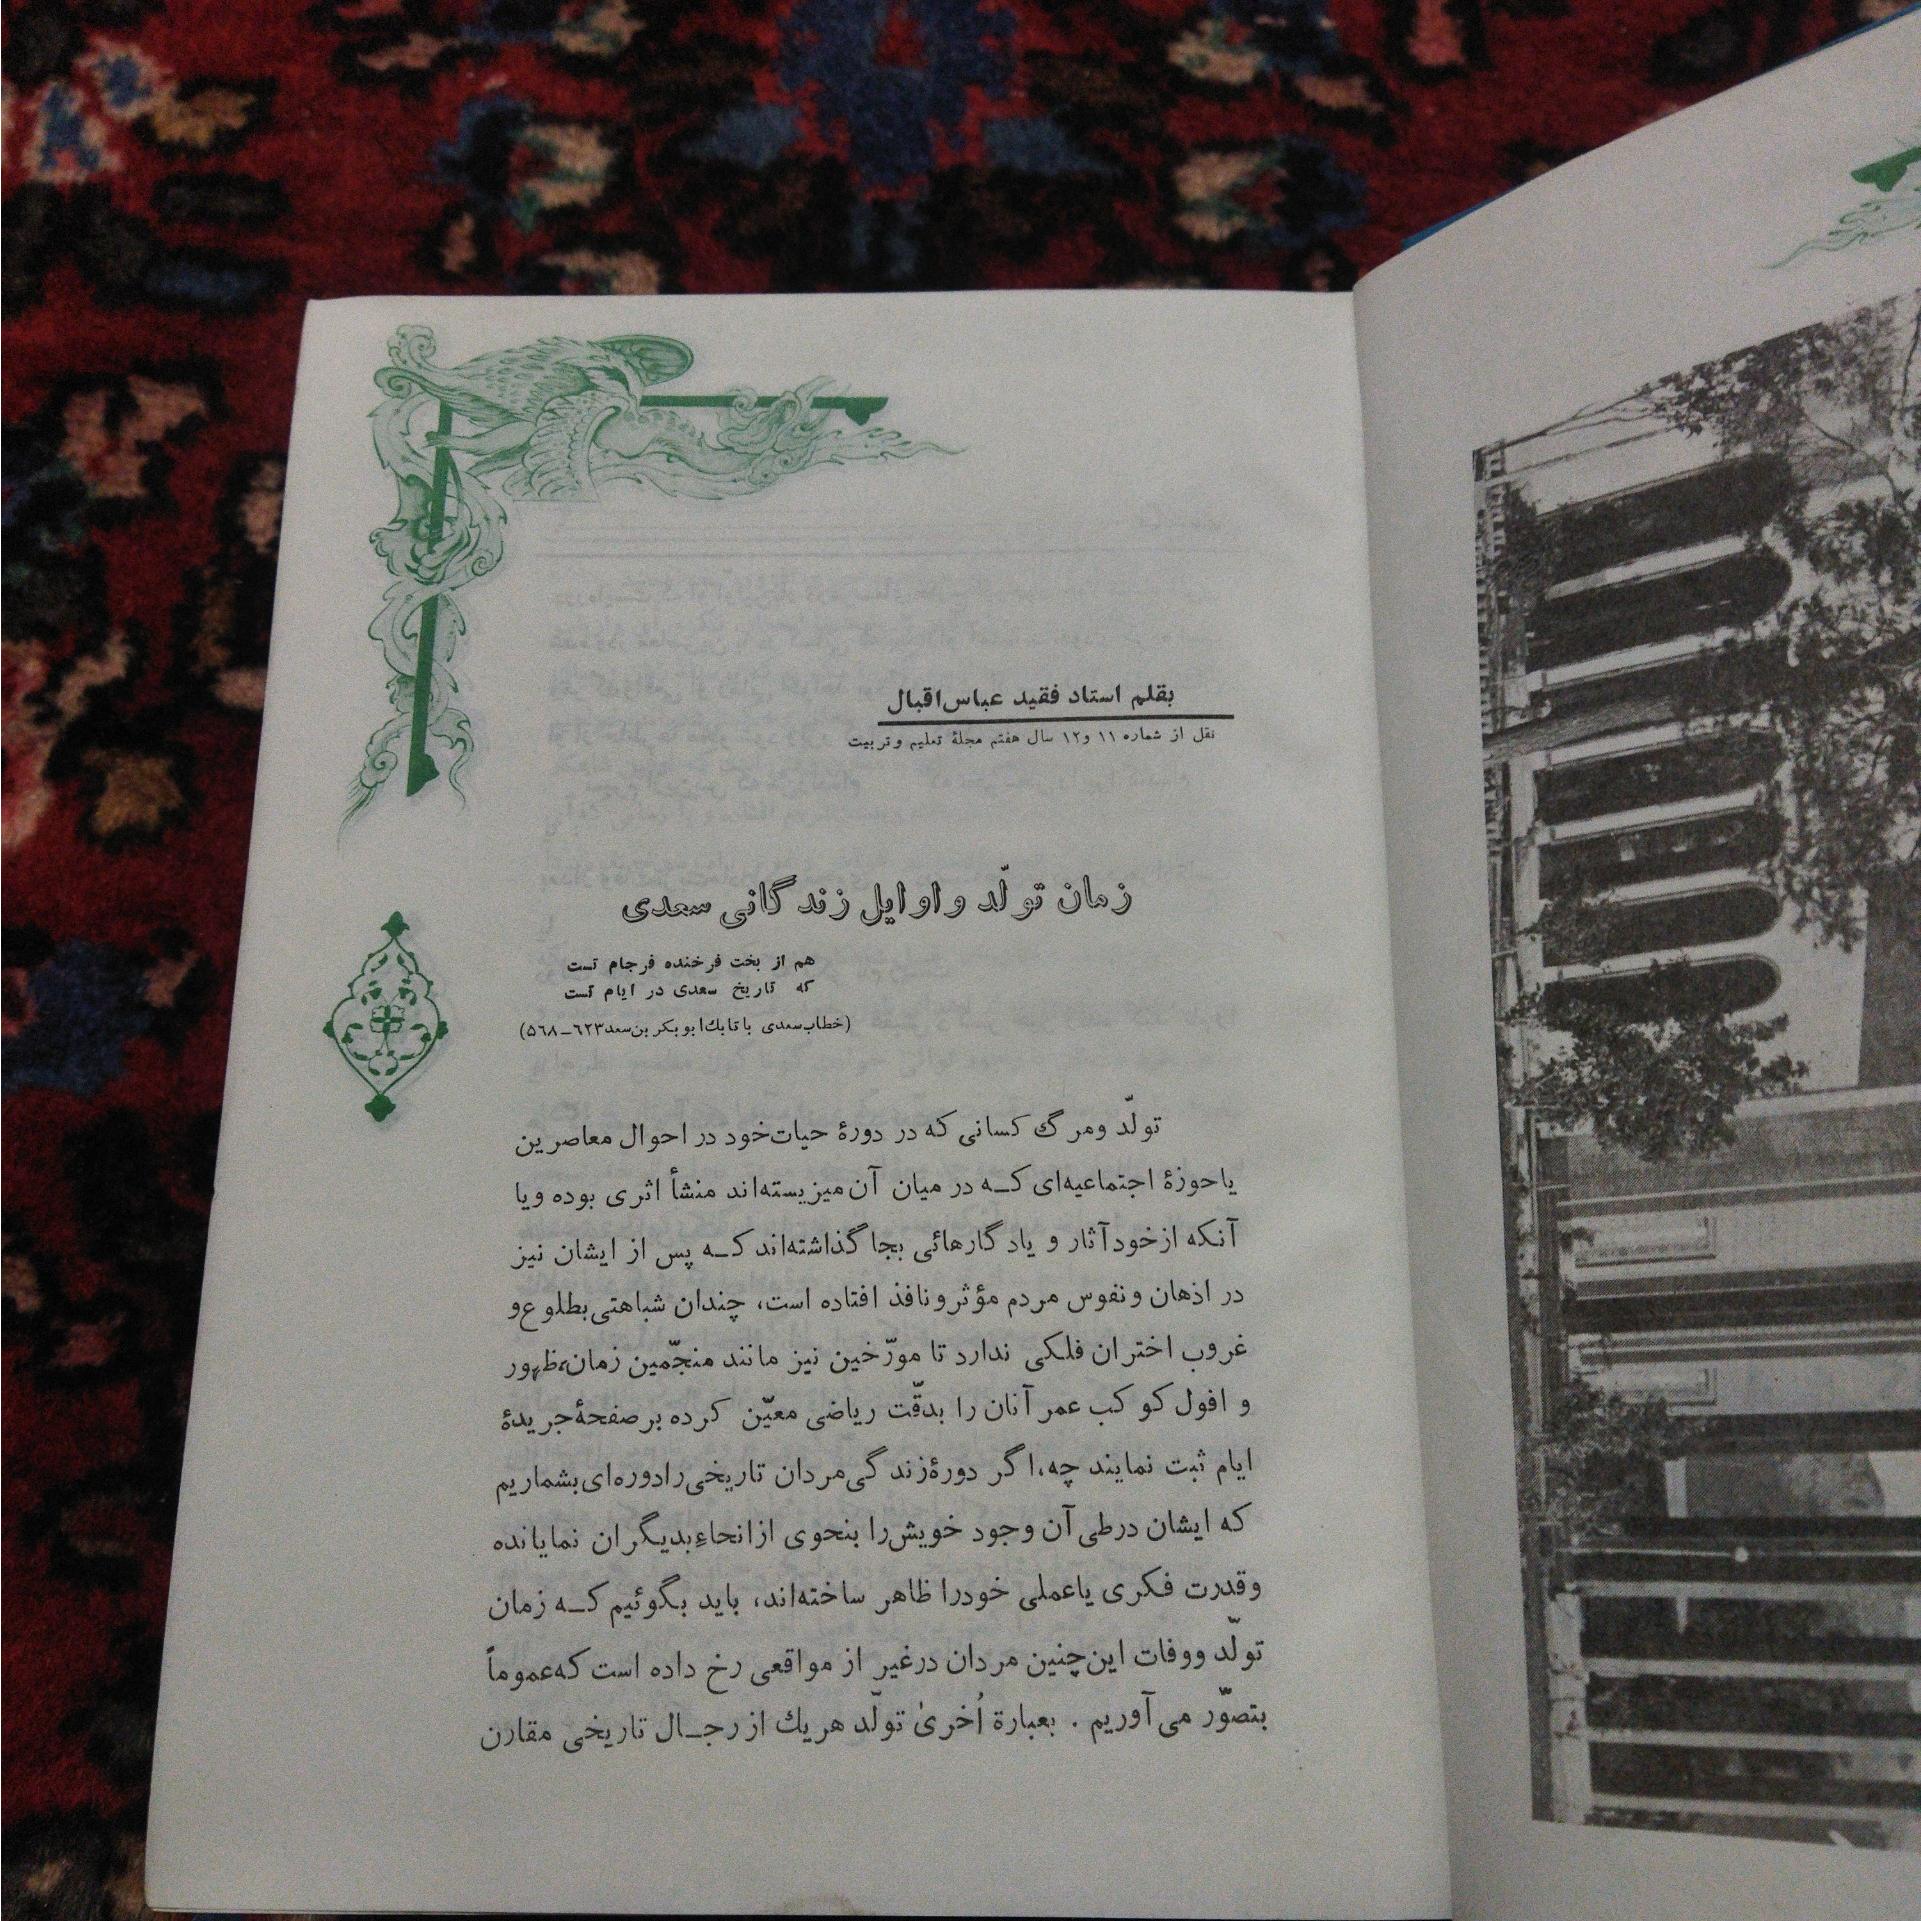 بقلم استاد فقید عباس‌اقبال
نقل از شماره ۱۱ و۱۲ سال هفتم مجلهٔ تعلیم وتربیت
زمان تولّد و اوایل زندگانی سعدی
هم از بخت فرخنده فرجام تست
که تاریخ سعدی در ایام تست
(خطاب‌سعدی باتابك‌ابوبکر بن‌سعد۶۲۳-۵۶۸)
تولّد ومرگ کسانی که در دورهٔ حیات‌خود در احوال معاصرین
یاحوزهٔ اجتماعیه‌ای کـه در میان آن‌میزیسته‌اند منشأ اثری بوده ویا
آنکه ازخودآثار و یادگارهائی بجاگذاشته‌اند کـه پس از ایشان نیز
در اذهان ونفوس مردم مؤثرونافذ افتاده است، چندان شباهتی‌بطلوع‌و
غروب اختران فلکی ندارد تا مورّخین نیز مانند منجّمین زمان‌ظهور
و افول کوکب عمر آنان را بدقّت ریاضی معیّن کرده برصفحهٔ‌جریدهٔ
ایام ثبت نمایند چه،اگر دورهٔ‌زندگی‌مردان تاریخی‌رادوره‌ای‌بشماریم
که ایشان درطی‌آن وجود خویش‌را بنحوی ازانحاءِبدیگران نمایانده
وقدرت فکری یاعملی خودرا ظاهر ساخته‌اند، باید بگوئیم کـه زمان
تولّد ووفات این‌چنین مردان درغیر از مواقعی رخ داده است که‌عموماً
بتصوّر می‌آوریم . بعبارة اُخریٰ تولّد هریك از رجـال تاریخی مقارن